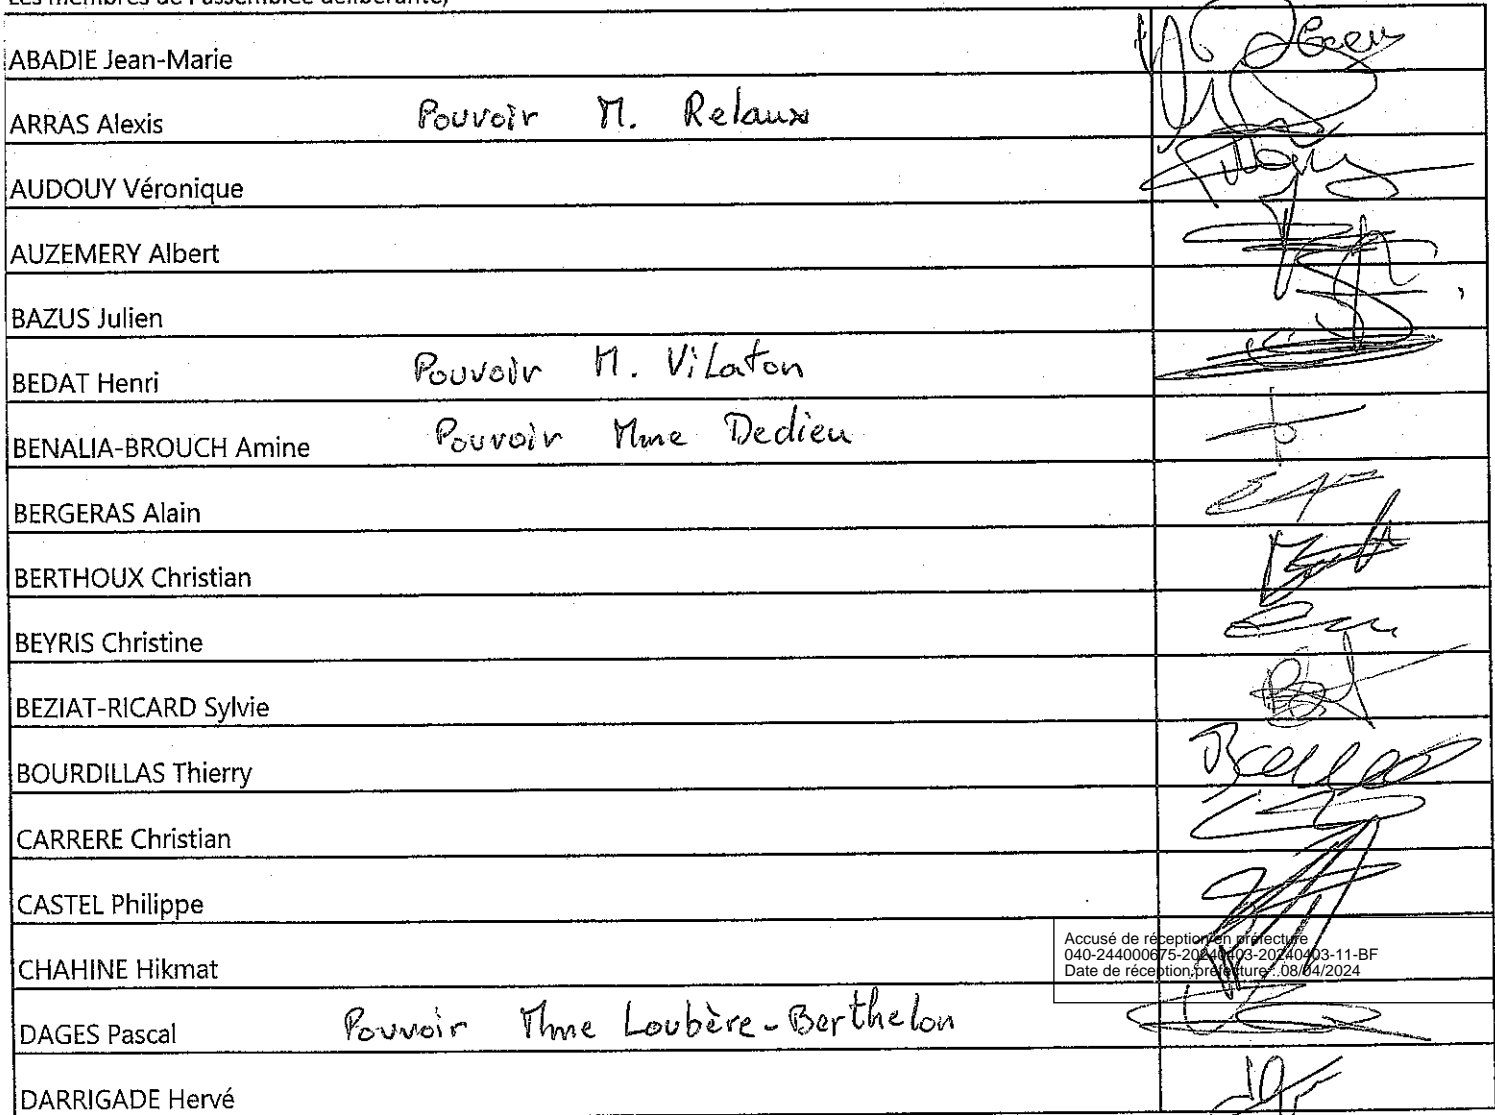 Les membres de l'assemblée délibérante,
ABADIE Jean-Marie
ARRAS Alexis Pouvoir M. Relaux
AUDOUY Véronique
AUZEMERY Albert
BAZUS Julien
BEDAT Henri Pouvoir M. Vilaton
BENALIA-BROUCH Amine Pouvoir Mme Dedieu
BERGERAS Alain
BERTHOUX Christian
BEYRIS Christine
BEZIAT-RICARD Sylvie
BOURDILLAS Thierry
CARRERE Christian
CASTEL Philippe
CHAHINE Hikmat
Accusé de réception en préfecture
040-244000675-20240403-20240403-11-BF
Date de réception préfecture : 08/04/2024
DAGES Pascal Pouvoir Mme Loubère-Berthelon
DARRIGADE Hervé